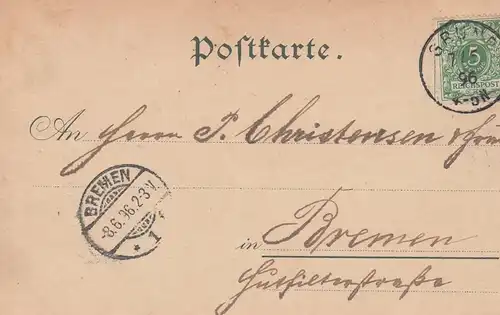 Postkarte.
GRUND
7
96
4-5N.
5
REICHSPOST
An Herrn P. Christensen & Frau
BREMEN
-8.6.96.2-3V.
* 1 *
in Bremen
Hutfilterstraße